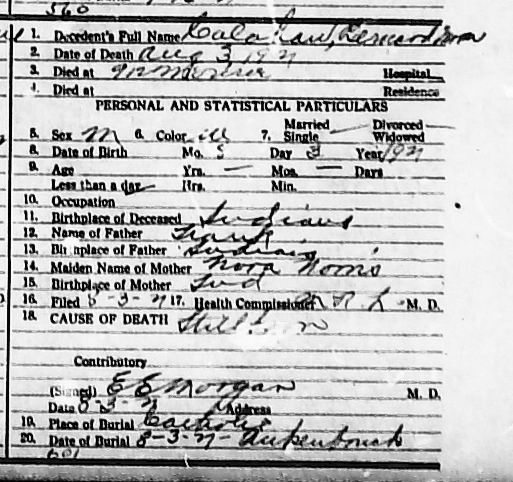 560
1. Decedent's Full Name
2. Date of Death Aug 3, 192
3. Died at Hospital
4. Died at Residence
PERSONAL AND STATISTICAL PARTICULARS
5. Sex M 6. Color W 7. Married Single Divorced Widowed
8. Date of Birth Mo. 8 Day 3 Year 192
9. Age Yrs. — Mos. — Days
Less than a day Hrs. Min.
10. Occupation
11. Birthplace of Deceased Indiana
12. Name of Father Frank
13. Birthplace of Father Indiana
14. Maiden Name of Mother Nora Norris
15. Birthplace of Mother Ind
16. Filed 8-3-2 17. Health Commissioner M. D.
18. CAUSE OF DEATH Still Born
Contributory
(Signed) E E Morgan M. D.
Date 8-3-2 Address
19. Place of Burial Catholic
20. Date of Burial 8-3-2
601